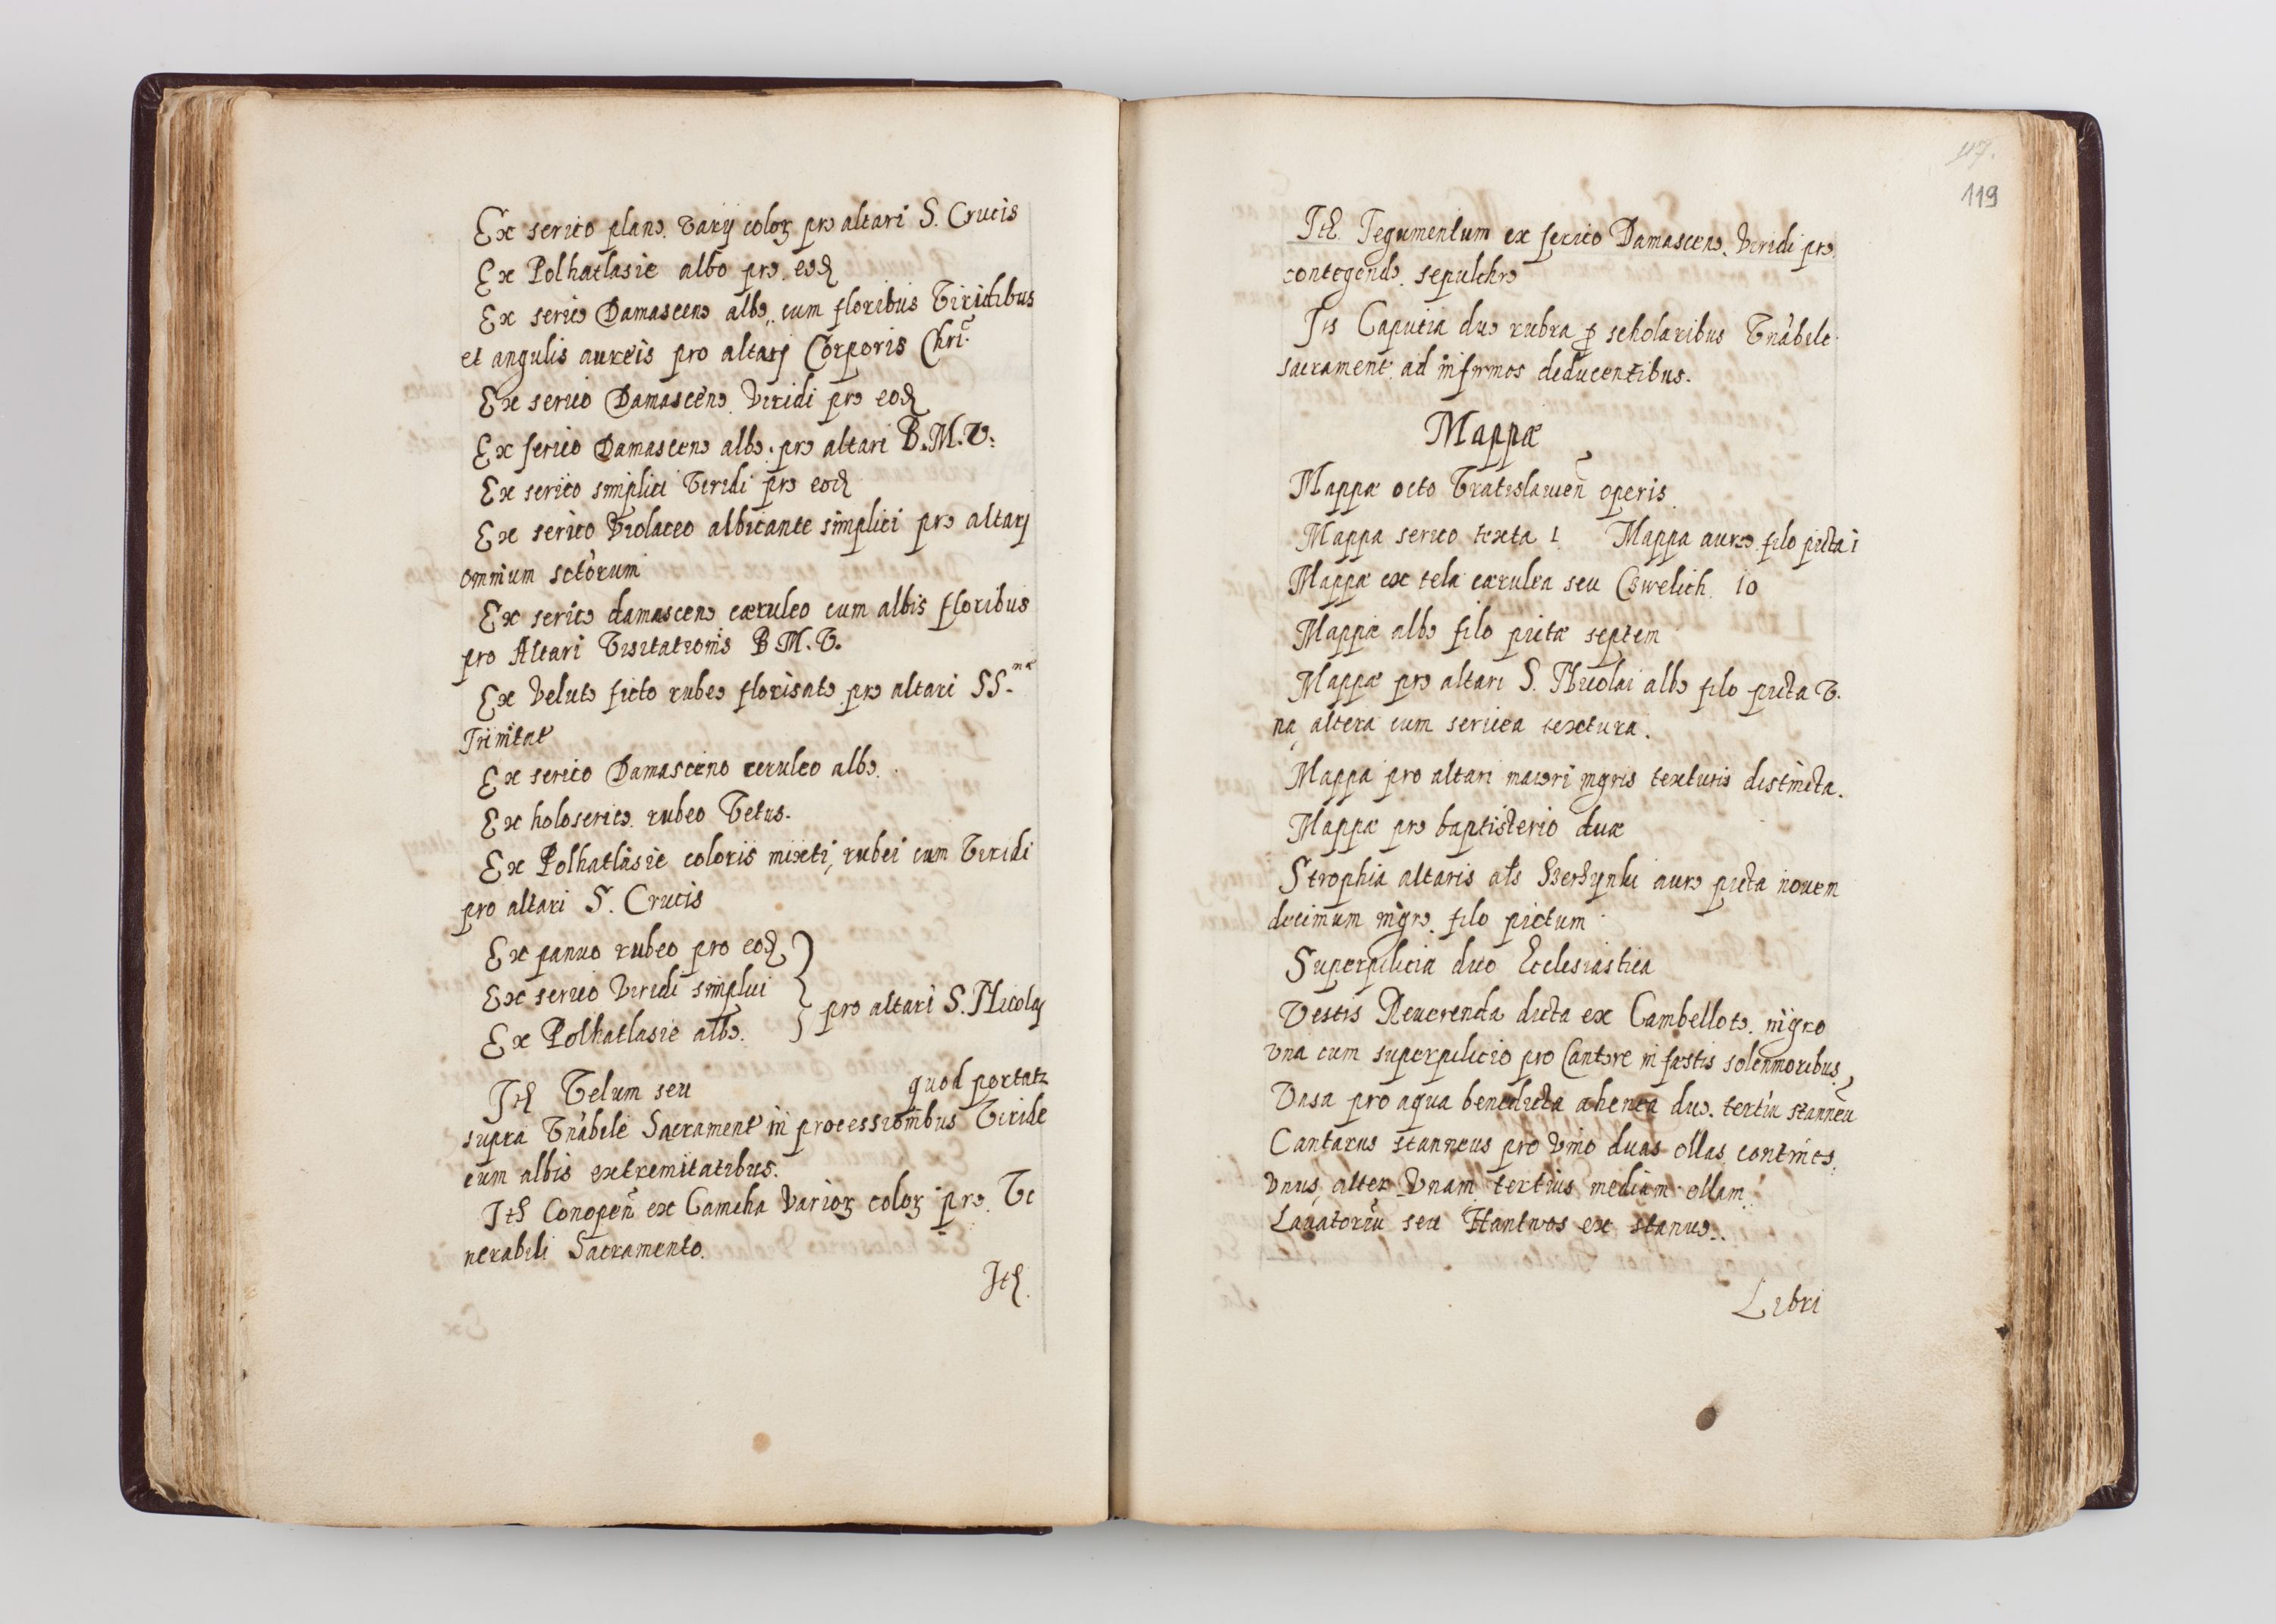 Ex serico plano varij coloꝝ pro altari S. Crucis
Ex Polhatlasie albo pro eod
Ex serico Damasceno albo cum floribus Viridibus
et angulis aureis pro altarj Corporis Chri.
Ex serico Damasceno Viridi pro eod
Ex serico Damasceno albo pro altari B. M. V:
Ex serico simplici Viridi pro eod
Ex serico Violaceo albicante simplici pro altarj
omnium sctorum
Ex serico damasceno cæruleo cum albis floribus
pro Altari Visitationis B M. V.
Ex Veluto ficto rubeo florisato pro altari SS.mæ
Trinitat
Ex serico Damasceno ceruleo albo.
Ex holoserico rubeo Vetus.
Ex Polhatlasie coloris mixti, rubei cum Viridi
pro altari S. Crucis
Ex panno rubeo pro eod
Ex serico Viridi simplici
Ex Polhatlasie albo. pro altari S. Nicolaj
Itē Velum seu quod portatꝛ
supra Vnābile Sacrament in processionibus Viride
cum albis extremitatibus.
Itē Conopeū ex Camcha Varioꝝ coloꝝ pro Ve
nerabili Sacramento.
Itē.
117.
119
Itē. Tegumentum ex serico Damasceno Viridi pro
contegendo sepulchro
Itē Caputia duo rubra ꝓ scholaribus Vnābile
sacrament ad infirmos deducentibus.
Mappæ
Mappæ octo Vratislauień operis
Mappa serico texta 1 Mappa aureo filo picta 1
Mappæ ex tela cærulea seu Cswelich 10
Mappæ albo filo pictæ septem
Mappæ pro altari S. Nicolai albo filo picta V.
na, altera cum sericea textura.
Mappa pro altari maiori nigris texturis distincta.
Mappæ pro baptisterio duæ
Strophia altaris als auro picta nouem
decimum nigro filo pictum
Superpilicia duo Ecclesiastica
Vestis Reuerenda dicta ex Cambelloto nigro
vna cum superpilicio pro Cantore in festis solennioribus
Vasa pro aqua benedicta ahenea duo. tertiū stanneū
Cantarus stanneus pro vino duas ollas continēs
vnus, alter Vnam, tertius mediam ollam
Lauatoriū seu Hantwos ex stanno.
Libri